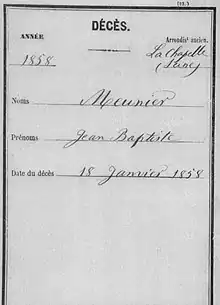 DÉCÈS.
ANNÉE
Arrondisᵗ ancien.
1858
La Chapelle
(Seine)
Noms Meunier
Prénoms Jean Baptiste
Date du décès 18 Janvier 1858